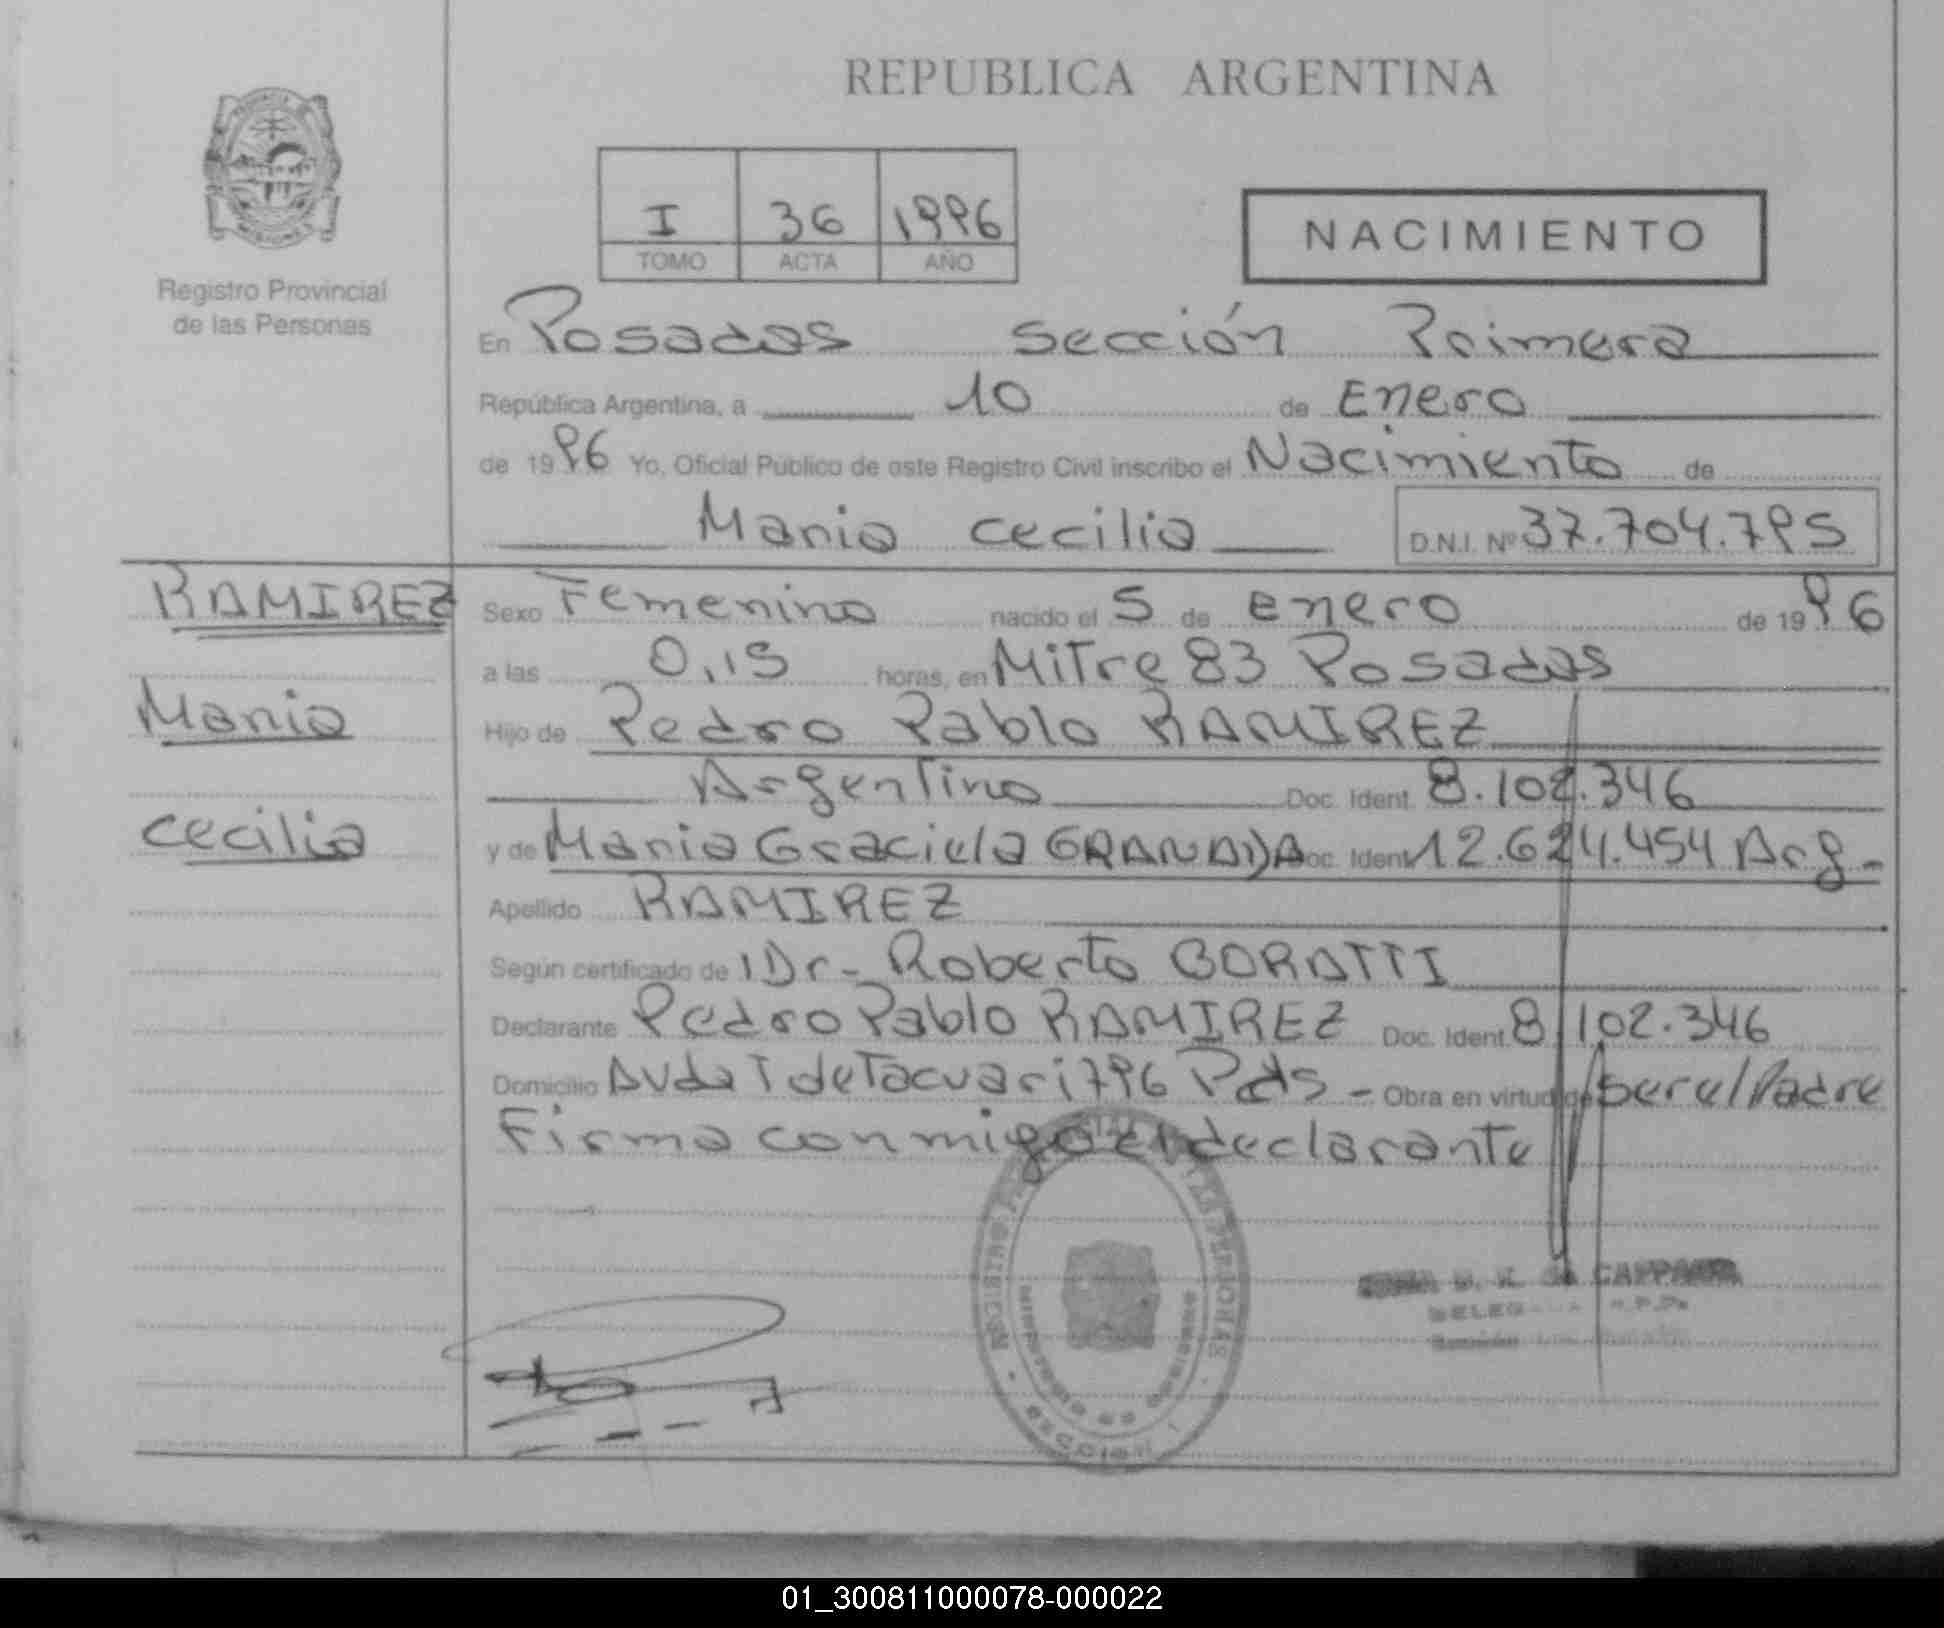 REPUBLICA ARGENTINA
MISIONES
Registro Provincial
de las Personas
I 36 1996
TOMO ACTA AÑO
NACIMIENTO
En Posadas Sección Primera
República Argentina, a 10 de Enero
de 1996 Yo, Oficial Público de este Registro Civil inscribo el Nacimiento de
Maria Cecilia D.N.I. Nº 37.704.795
RAMIREZ
Maria
Cecilia
Sexo Femenino nacido el 5 de enero de 1996
a las 0,15 horas, en Mitre 83 Posadas
Hijo de Pedro Pablo RAMIREZ
Argentino Doc. Ident. 8.102.346
y de Maria Graciela GRANADA Doc. Ident. 12.624.454 Arg-
Apellido RAMIREZ
Según certificado de Dr- Roberto BORATTI
Declarante Pedro Pablo RAMIREZ Doc. Ident. 8.102.346
Domicilio Avda T de Tacuari 796 Pdas - Obra en virtud de ser el Padre
Firma conmigo el declarante
01_300811000078-000022